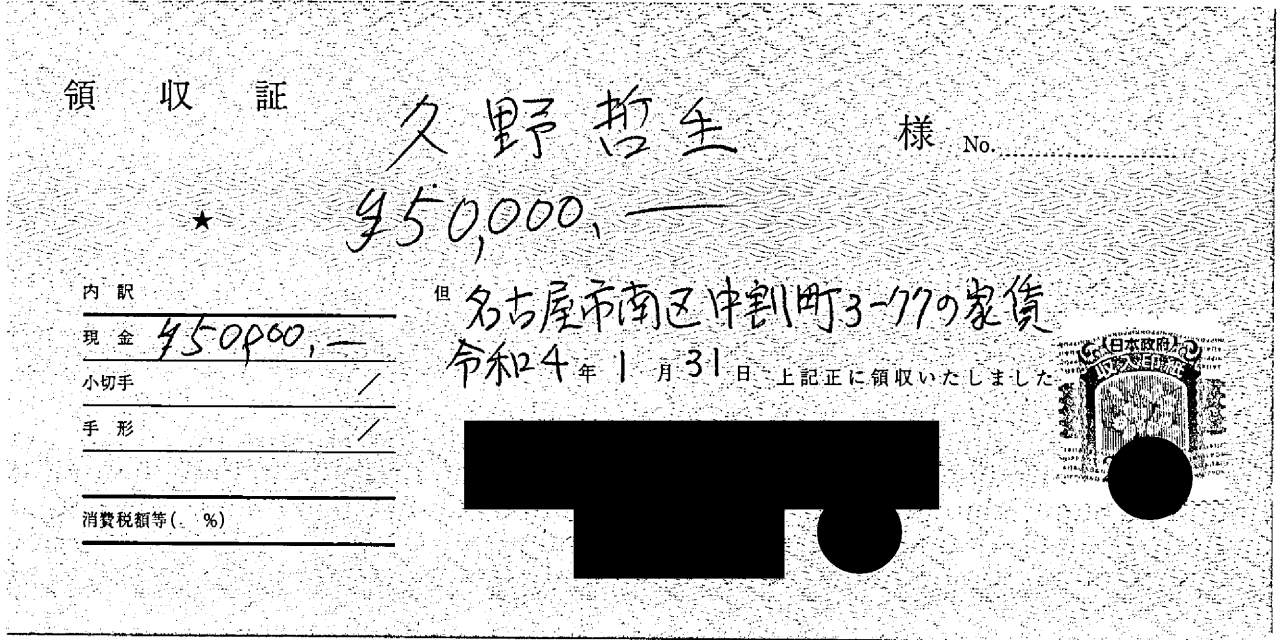 領 収 証 久野哲生 様 No.
★ ¥50,000,―
内 訳
現 金 ¥50,000,―
小切手 /
手 形 /
消費税額等( %)
但 名古屋市南区中割町3-77の家賃
令和4年1月31日 上記正に領収いたしました
日本政府
収入印紙